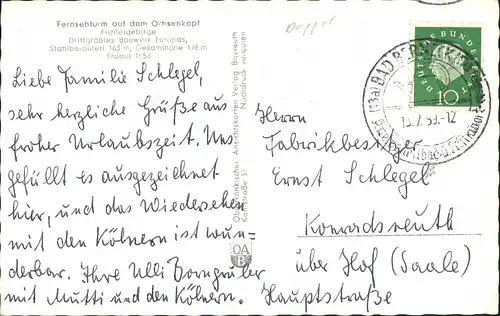 Fernsehturm auf dem Ochsenkopf
Fichtelgebirge
Drittgrößtes Bauwerk Europas,
Stahlbetonteil 163 m, Gesamthöhe 178 m
Erbaut 1958
Liebe Familie Schlegel,
sehr herzliche Grüße aus
froher Urlaubszeit. Uns
gefällt es ausgezeichnet
hier, und das Wiedersehen
mit den Kölnern ist wun-
derbar. Ihre Ulli Zorngrüber
mit Mutti und den Kölnern.
Oberfränkischer Ansichtskarten Verlag Bayreuth
Nachdruck verboten
OA
B
DEUTSCHE BUNDESPOST
10
(13a) BAD BERNECK
13.7.59.-12
Herrn
Fabrikbesitzer
Ernst Schlegel
Konradsreuth
über Hof (Saale)
Hauptstraße